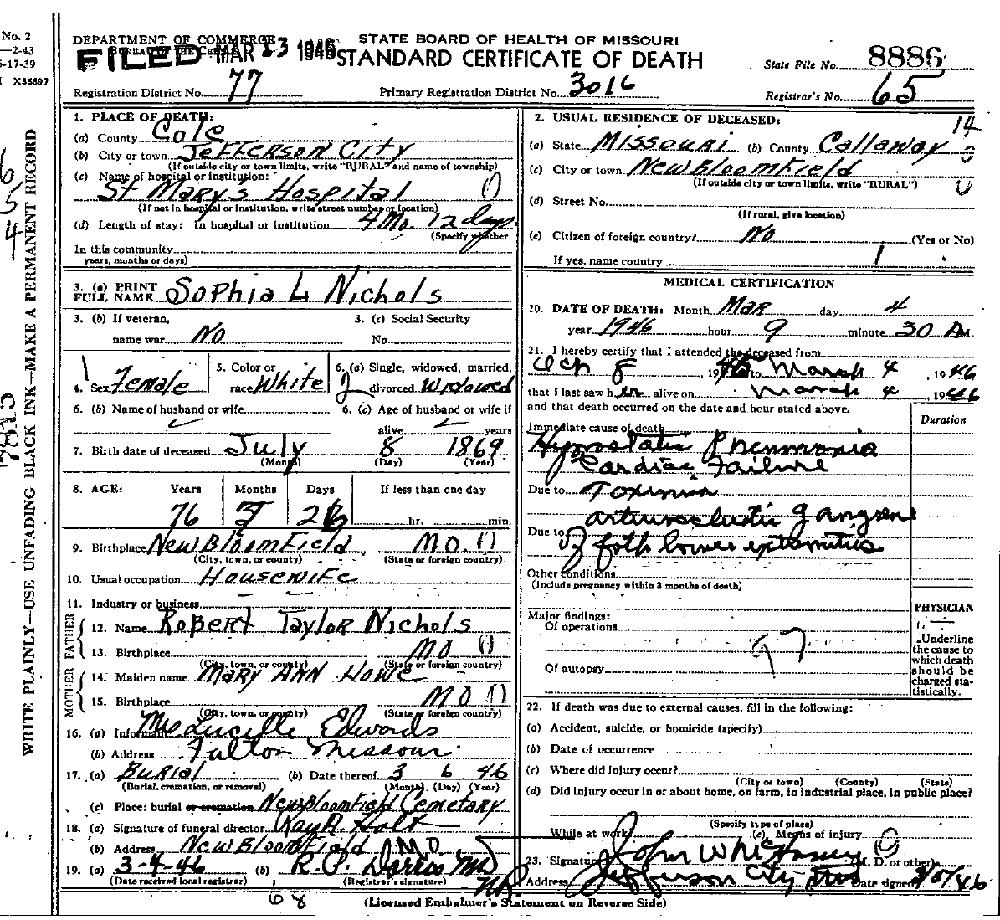 No. 2
—2-43
5-17-39
I X35597
WRITE PLAINLY—USE UNFADING BLACK INK—MAKE A PERMANENT RECORD
DEPARTMENT OF COMMERCE
STATE BOARD OF HEALTH OF MISSOURI
FILED MAR 13 1946
STANDARD CERTIFICATE OF DEATH
State File No. 8886
Registration District No. 77
Primary Registration District No. 3016
Registrar's No. 65
1. PLACE OF DEATH:
(a) County Cole
(b) City or town Jefferson City
(If outside city or town limits, write "RURAL" and name of township)
(c) Name of hospital or institution:
St Mary's Hospital
(If not in hospital or institution, write street number or location)
(d) Length of stay: In hospital or institution 4 Mo. 12 days
(Specify whether
In this community
years, months or days)
3. (a) PRINT FULL NAME Sophia L Nichols
3. (b) If veteran, name war No
3. (c) Social Security No.
4. Sex Female
5. Color or race White
6. (a) Single, widowed, married, divorced Widowed
6. (b) Name of husband or wife
6. (c) Age of husband or wife if alive years
7. Birth date of deceased July 8 1869
(Month) (Day) (Year)
8. AGE: Years Months Days If less than one day
76 hr. min.
9. Birthplace New Bloomfield MO.
(City, town, or county) (State or foreign country)
10. Usual occupation Housewife
11. Industry or business
FATHER
12. Name Robert Taylor Nichols
13. Birthplace MO
(City, town, or county) (State or foreign country)
MOTHER
14. Maiden name Mary Ann Howe
15. Birthplace MO
(City, town, or county) (State or foreign country)
16. (a) Informant Mrs Lucille Edwards
(b) Address Fulton Missouri
17. (a) Burial (b) Date thereof 3 6 46
(Burial, cremation, or removal) (Month) (Day) (Year)
(c) Place: burial or cremation New Bloomfield Cemetary
18. (a) Signature of funeral director Ray R Holt
(b) Address New Bloomfield MO
19. (a) 3-9-46 (b) R. P. Dorris MD
(Date received local registrar) (Registrar's signature)
68
2. USUAL RESIDENCE OF DECEASED:
14
(a) State Missouri (b) County Callaway
(c) City or town New Bloomfield
(If outside city or town limits, write "RURAL")
(d) Street No.
(If rural, give location)
(e) Citizen of foreign country? No (Yes or No)
If yes, name country
MEDICAL CERTIFICATION
20. DATE OF DEATH: Month Mar day 4
year 1946 hour 9 minute 30 A M.
21. I hereby certify that I attended the deceased from
Oct 8 to March 4, 1946
that I last saw her alive on March 4, 1946
and that death occurred on the date and hour stated above.
Duration
Immediate cause of death
Hypostatic Pneumonia
Cardiac Failure
Due to Toximia
arteriosclerotic gangrene
Due to of both lower extremities
Other conditions
(Include pregnancy within 3 months of death)
Major findings:
Of operations
97
Of autopsy
PHYSICIAN
Underline
the cause to
which death
should be
charged sta-
tistically.
22. If death was due to external causes, fill in the following:
(a) Accident, suicide, or homicide (specify)
(b) Date of occurrence
(c) Where did injury occur?
(City or town) (County) (State)
(d) Did injury occur in or about home, on farm, in industrial place, in public place?
(Specify type of place)
While at work (e) Means of injury
23. Signature John W (M. D. or other)
Address Jefferson City Mo Date signed
(Licensed Embalmer's Statement on Reverse Side)